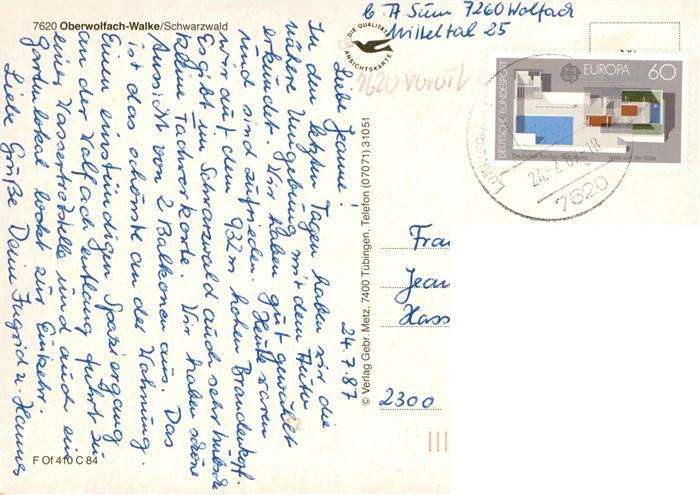 7620 Oberwolfach-Walke/Schwarzwald
24.7.87
Liebe Jeanne!
In den letzten Tagen haben wir die
nähere Umgebung mit dem Auto
erkundet. Wir haben gut gewählt
und sind zufrieden. Heute waren
wir auf dem 932 m hohen Brandenkopf.
Es gibt im Schwarzwald auch sehr hübsche
kleine Fachwerkorte. Wir haben schöne
Aussicht von 2 Balkonen aus. Das
ist das schönste an der Wohnung.
Einen einstündigen Spaziergang
an der Wolfach entlang führt zu
einer Wassertretstelle und auch ein
Gartenlokal lockt zur Einkehr.
Liebe Grüße Deine Ingrid u. Hannes
F Of 410 C 84
© Verlag Gebr. Metz, 7400 Tübingen, Telefon (07071) 31051
DIE QUALITÄTS
ANSICHTSKARTE
b. A Sum 7260 Wolfach
Mitteltal 25
7620 vorort
DEUTSCHE BUNDESPOST
EUROPA 60
Deutscher Pavillon Barcelona
Mies van der Rohe
7620
Frau
Jean
Hass
2300